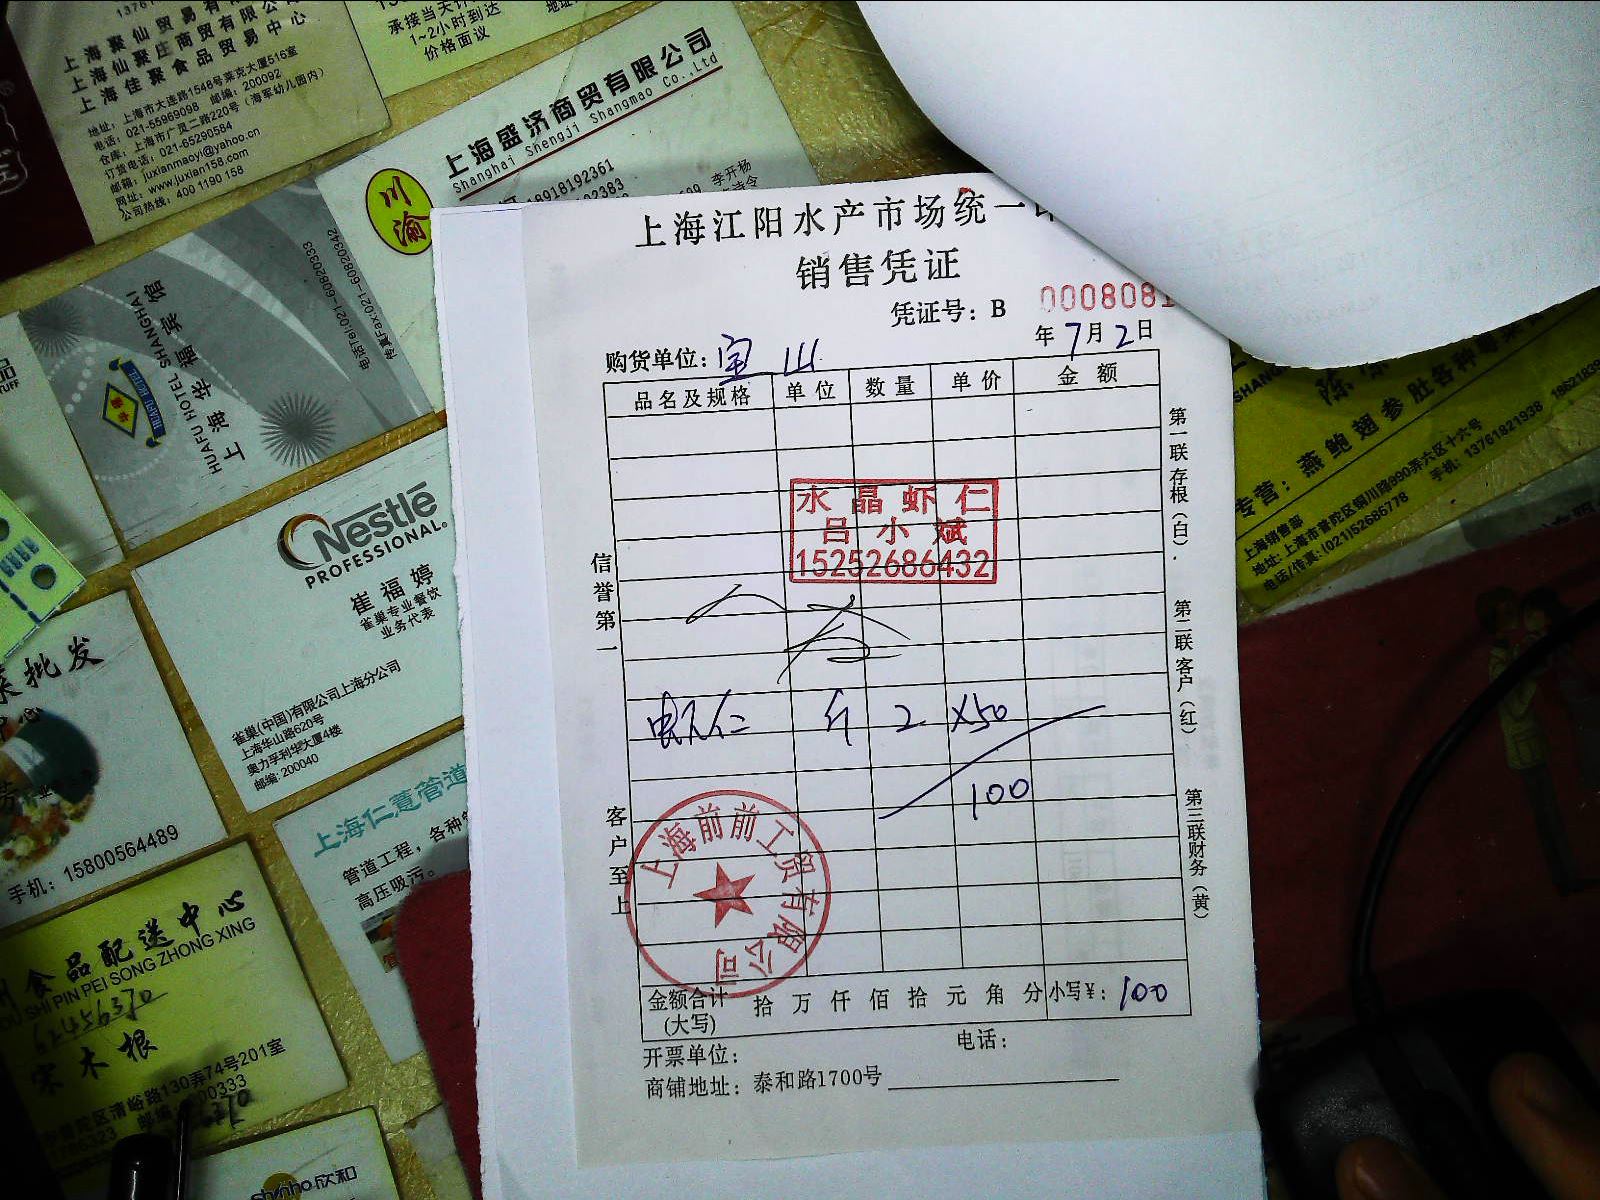 上海聚仙贸易有
上海仙聚庄商贸有限公
上海佳聚食品贸易中心
地址：上海市大连路1548号莱克大厦516室
电话：021-55969098 邮编：200092
仓库：上海市广灵二路220号（海军幼儿园内）
订货电话：021-65290584
邮箱：juxianmaoyi@yahoo.cn
网址：www.juxian158.com
公司热线：400 1190 158
承接当天计
1~2小时到达
价格面议
上海盛济商贸有限公司
Shanghai Shengji Shangmao Co.,Ltd
川渝
18918192361
李开杨
上海华福宾馆
HUAFU HOTEL SHANGHAI
电话Tel:021-60820333
传真Fax:021-60820342
Nestlé
PROFESSIONAL.
崔福婷
雀巢专业餐饮
业务代表
雀巢(中国)有限公司上海分公司
上海华山路620号
奥力孚利华大厦4楼
邮编: 200040
菜批发
手机：15800564489
上海仁薏管道
管道工程，各种管
高压吸污。
食品配送中心
SHI PIN PEI SONG ZHONG XING
62456370
宋木根
普陀区清峪路130弄74号201室
shinho 欣和
上海江阳水产市场统一
销售凭证
凭证号：B 0008081
年7月2日
购货单位：宝山
品名及规格 单位 数量 单价 金额
水晶虾仁
吕小斌
15252686432
虾仁 斤 2 ×50
100
信誉第一
客户至上
第一联存根（白）.
第二联客户（红）
第三联财务（黄）
上海前前工贸有限公司
金额合计 拾 万 仟 佰 拾 元 角 分 小写¥：100
(大写)
开票单位： 电话：
商铺地址：泰和路1700号
专营：燕鲍翅参肚各种
上海销售部
地址: 上海市普陀区铜川路990弄六区十六号
电话/传真: (021)52686778 手机：13761821938